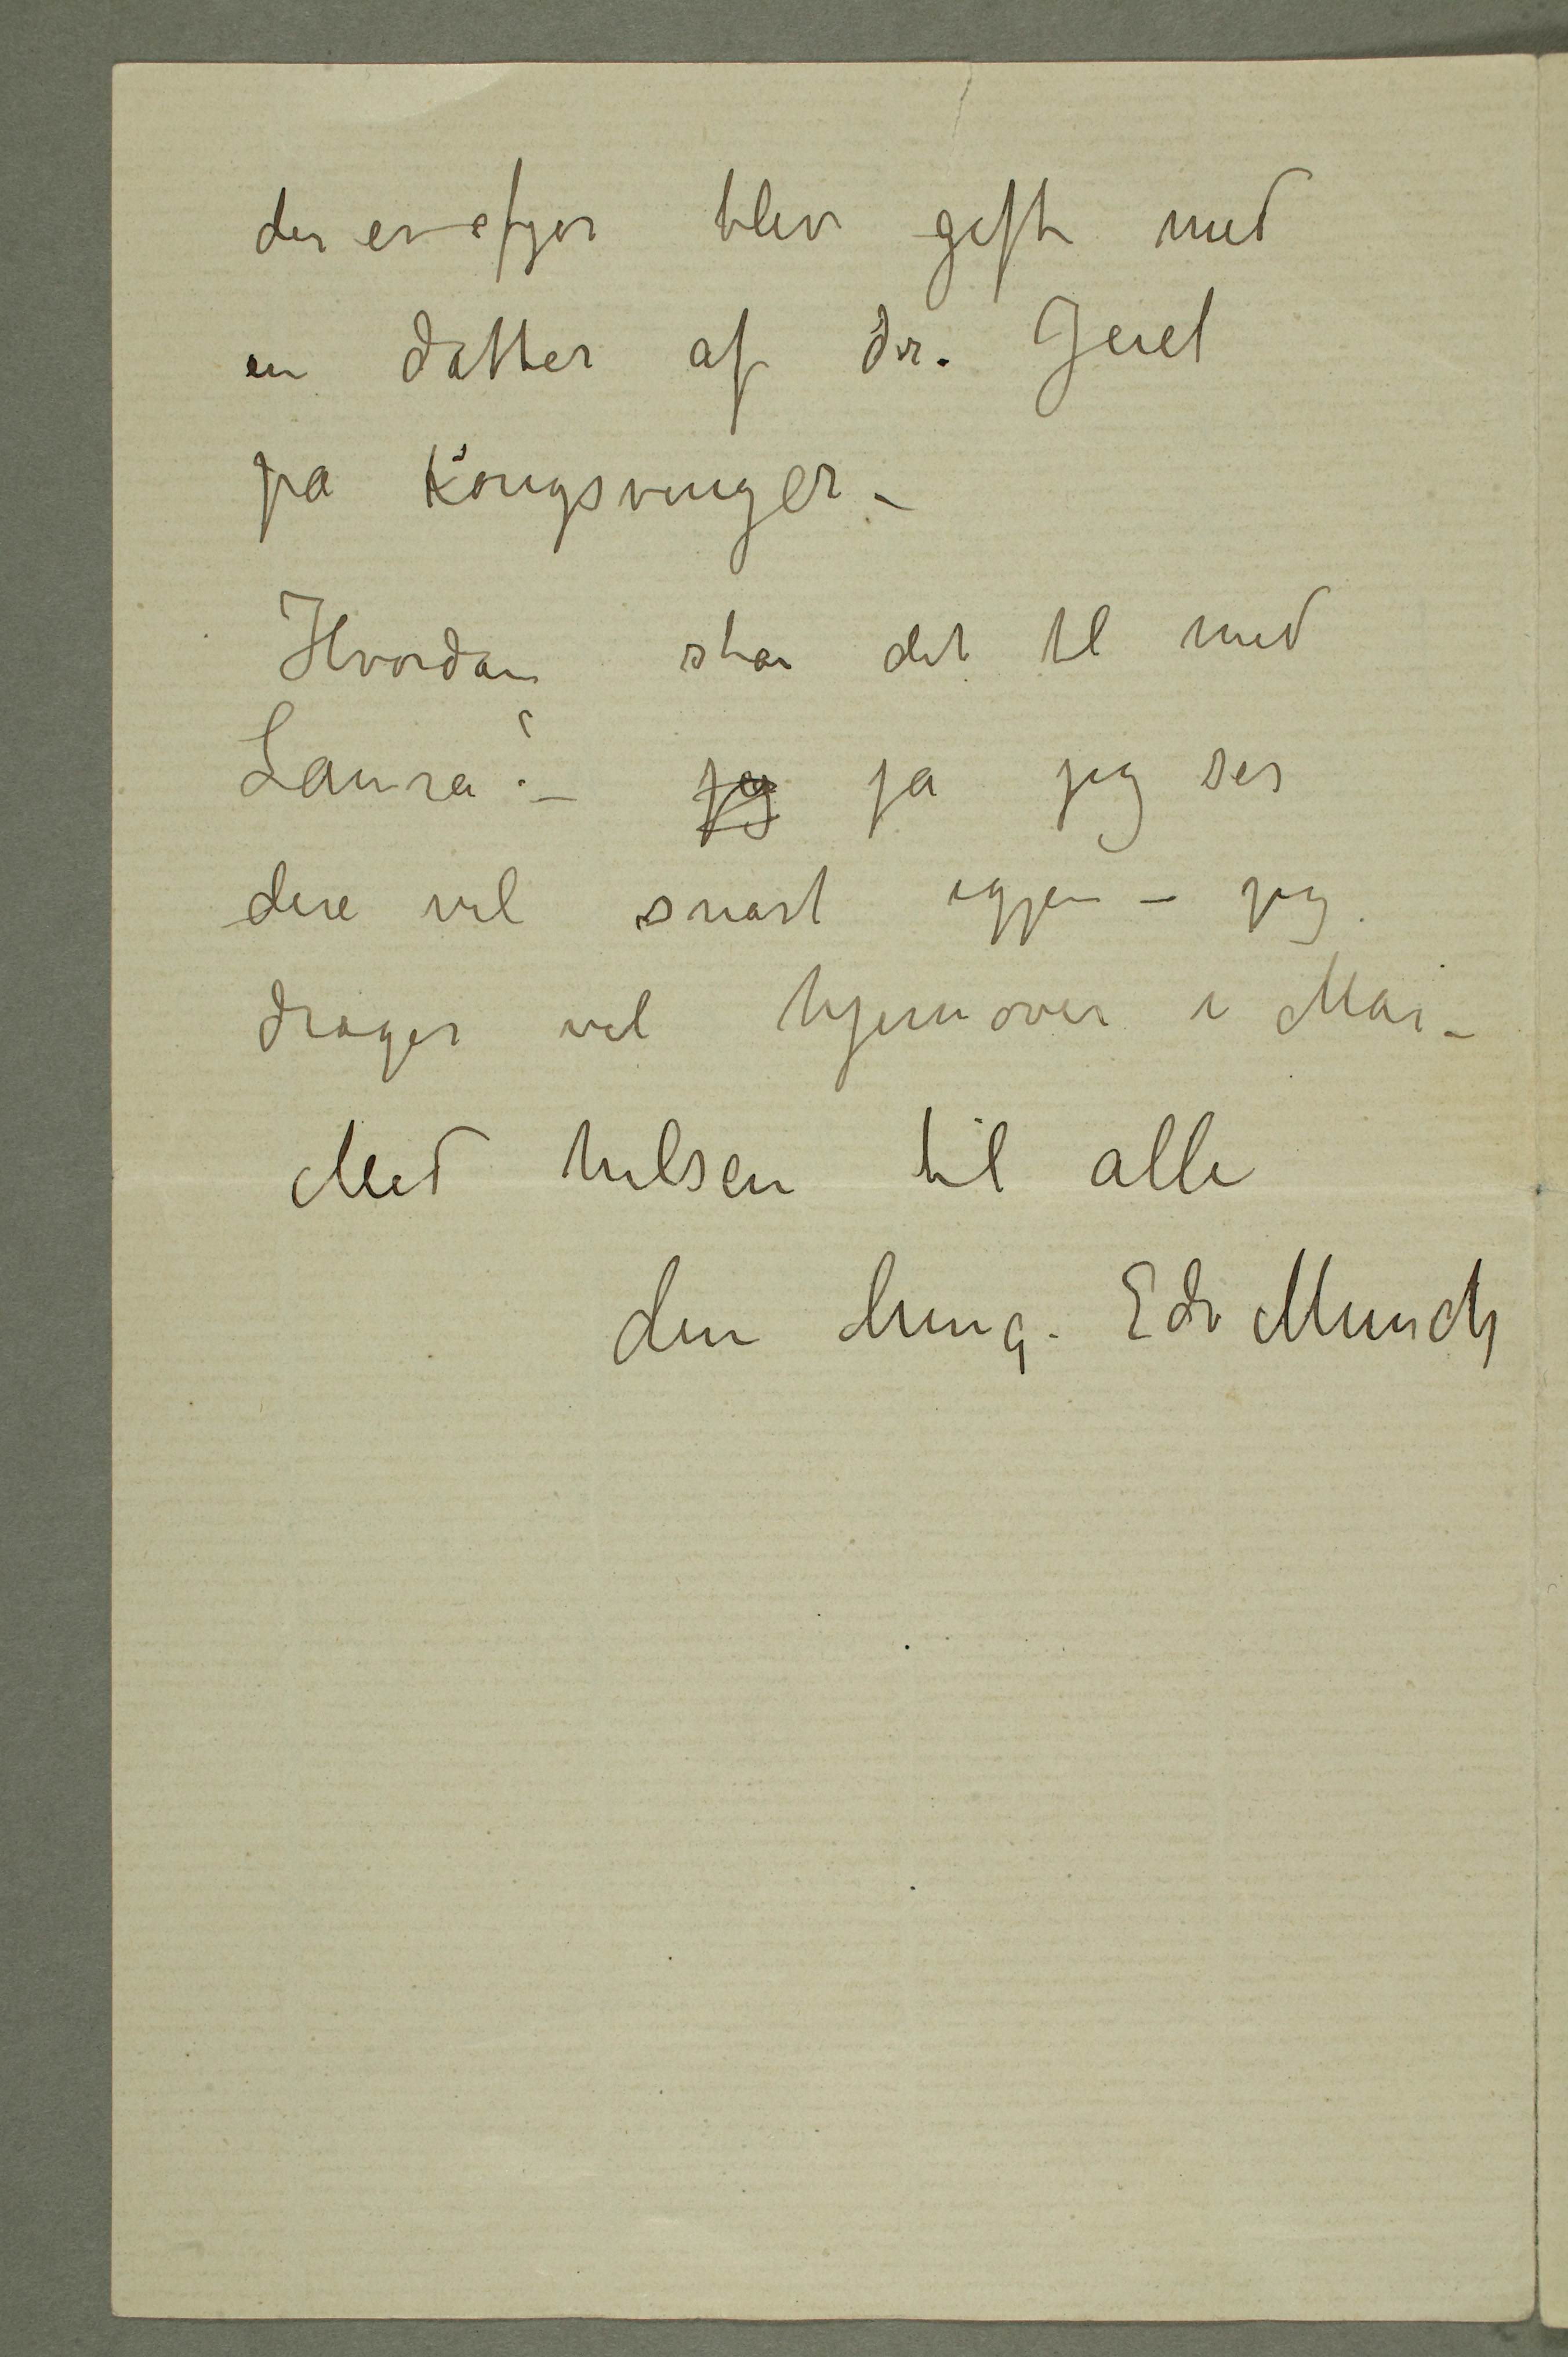 der er ifjor blev gift med
en datter af dr. Juel
på Kongsvinger –
Hvordan står det til med
Laura? – jeg ja jeg ser
dere vel snart igjen – jeg
drager vel hjemover i Mai –
Med hilsen til alle
din heng. Edv Munch